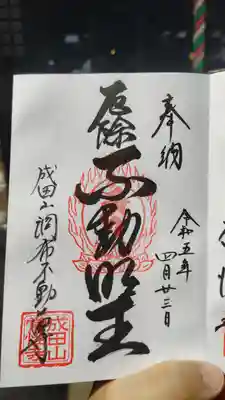 奉納
令和五年
四月廿三日
厄除不動明王
成田山調布不動尊
成田山